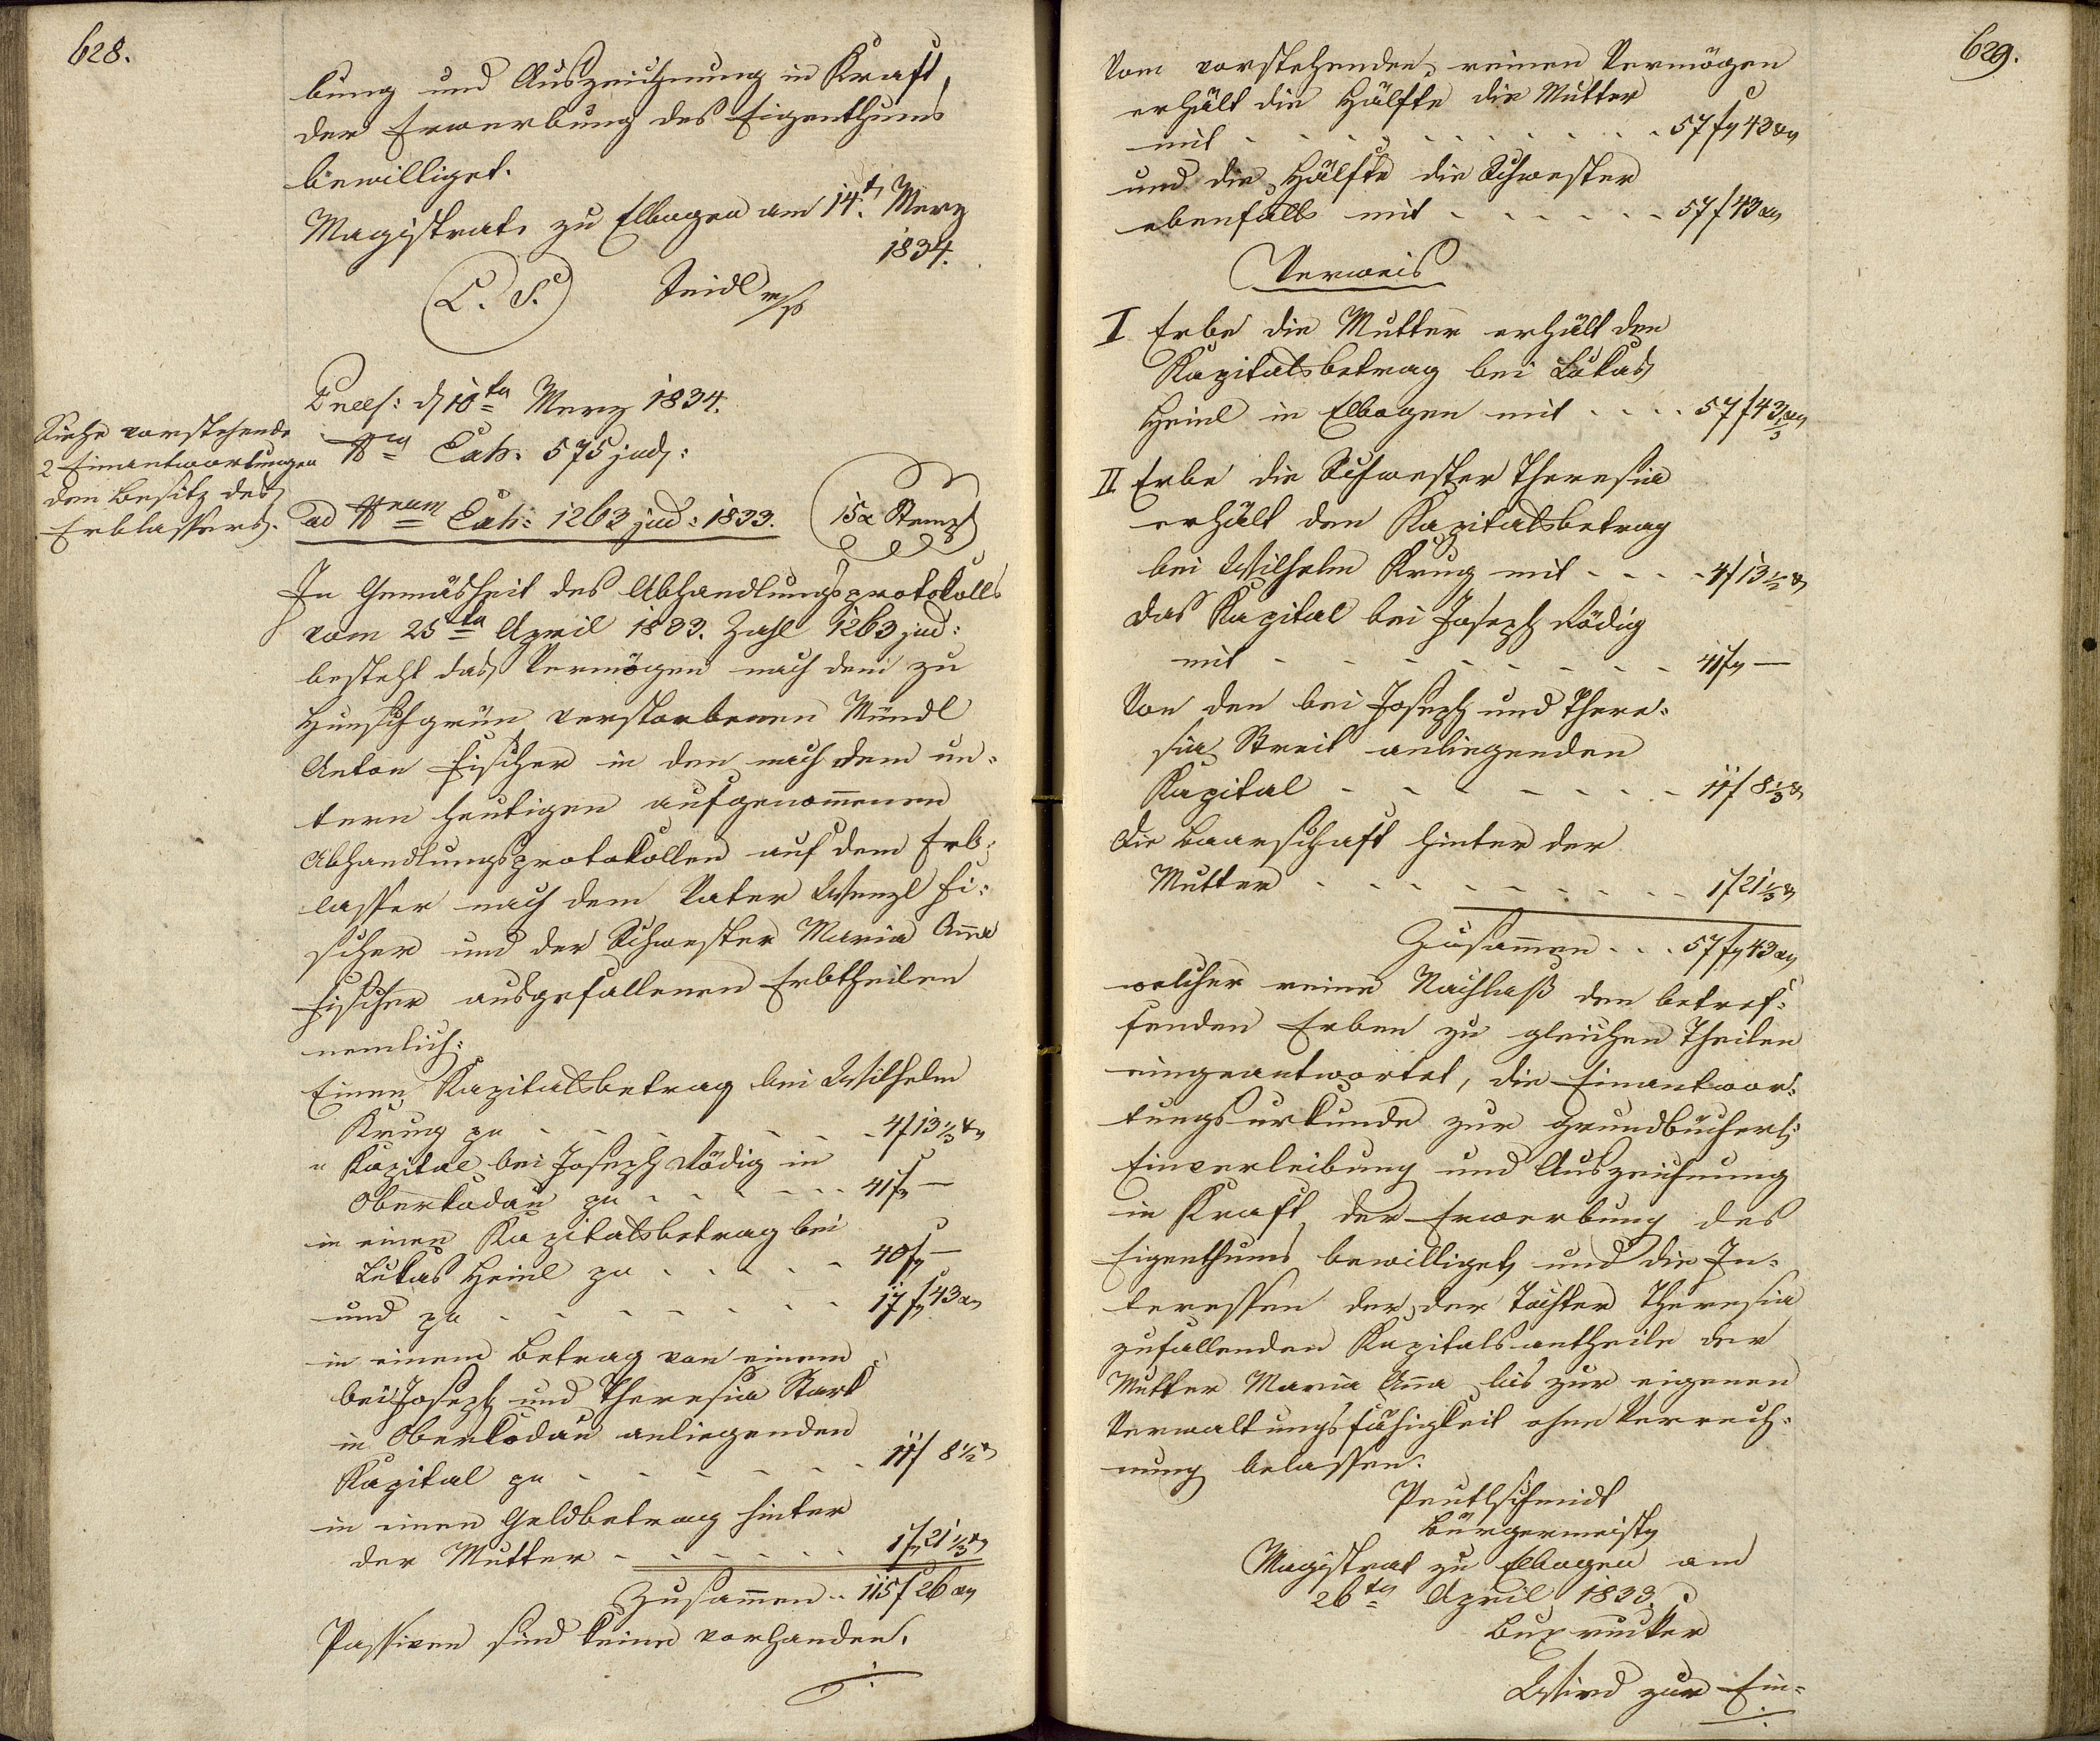 628.
bung und Auszeichnung in Kraft
der Erwerbung des Eigenthums
bewilliget.
Magistrat zu Elbogen am 14t. Merz
1834.
L. S. Seidl m/p
Praes: d 10ta Merz 1834.
Nro Exh. 575 jud:
ad Nrum Exh: 1263 jud: 1833. 15x Stempl
Siehe vorstehende
2 Einantwortungen
den Besitz des
Erblassers.
In Gemäsheit des Abhandlungsprotokolls
vom 25ta April 1833. Zahl 1263 jud:
besteht das Vermögen nach dem zu
verstorbenen Mündl
Anton Fischer in den nach dem un-
tern heutigen aufgenom̅enen
Abhandlungsprotokollen auf dem Erb-
lasser nach dem Vater Wenzl Fi-
scher und der Schwester Maria Anna
Fischer ausgefallenen Erbtheilen
nemlich:
Einen Kapitalsbetrag bei Wilhelm
Krug pr - - - - - - - 4f 13 1/3 x
" Kapital bei Joseph Rödig in
Oberkodau pr - - - - - - 41f —
in einen Kapitalsbetrag bei
Lukas Heinl pr - - - - - 40f —
und pr - - - - - - - 17f 43x
in einem Betrag von einem
bei Joseph und Theresia Stark
in Oberkodau anliegenden
Kapital pr - - - - - - 11f 8 1/2 x
in einen Geldbetrag hinter
der Mutter - - - - - - 1f 21 1/3 x
Zusam̅en - - 115f 26x
Passiven sind keine vorhanden.
629.
Vom vorstehenden reinen Vermögen
erhält die Hälfte die Mutter
mit - - - - - - - - 57f 43x
und die Hälfte die Schwester
ebenfalls mit - - - - - 57f 43x
Verweis
I Erbe die Mutter erhält den
Kapitalsbetrag bei Lukas
Heinl in Elbogen mit - - - - 57f 43x
II Erbe die Schwester Theresia
erhält den Kapitalsbetrag
bei Wilhelm Krug mit - - - - 4f 13 1/2 x
das Kapital bei Joseph Rödig
mit - - - - - - - - 41f —
Von den bei Joseph und There-
sia anliegenden
Kapital - - - - - - - 11f 8 1/3 x
die Baarschaft hinter der
Mutter - - - - - - - - 1f 21 1/3 x
Zusam̅en - - - 57f 43x
welcher reine Nachlaß den betref-
fenden Erben zu gleichen Theilen
eingeantwortet, die Einantwor-
tungsurkunde zur grundbücherl:
Einverleibung und Auszeichnung
in Kraft der Erwerbung des
Eigenthums bewilliget und die In-
teressen der der Tochter Theresia
zufallenden Kapitalsantheile der
Mutter Maria Anna bis zur eigenen
Verwaltungsfähigkeit ohne Verrech-
nung belassen.
Peutlschmidt
Bürgermeister
Magistrat zu Elbogen am
26ta April 1833.
Buxrucker
Wird zur Ein-